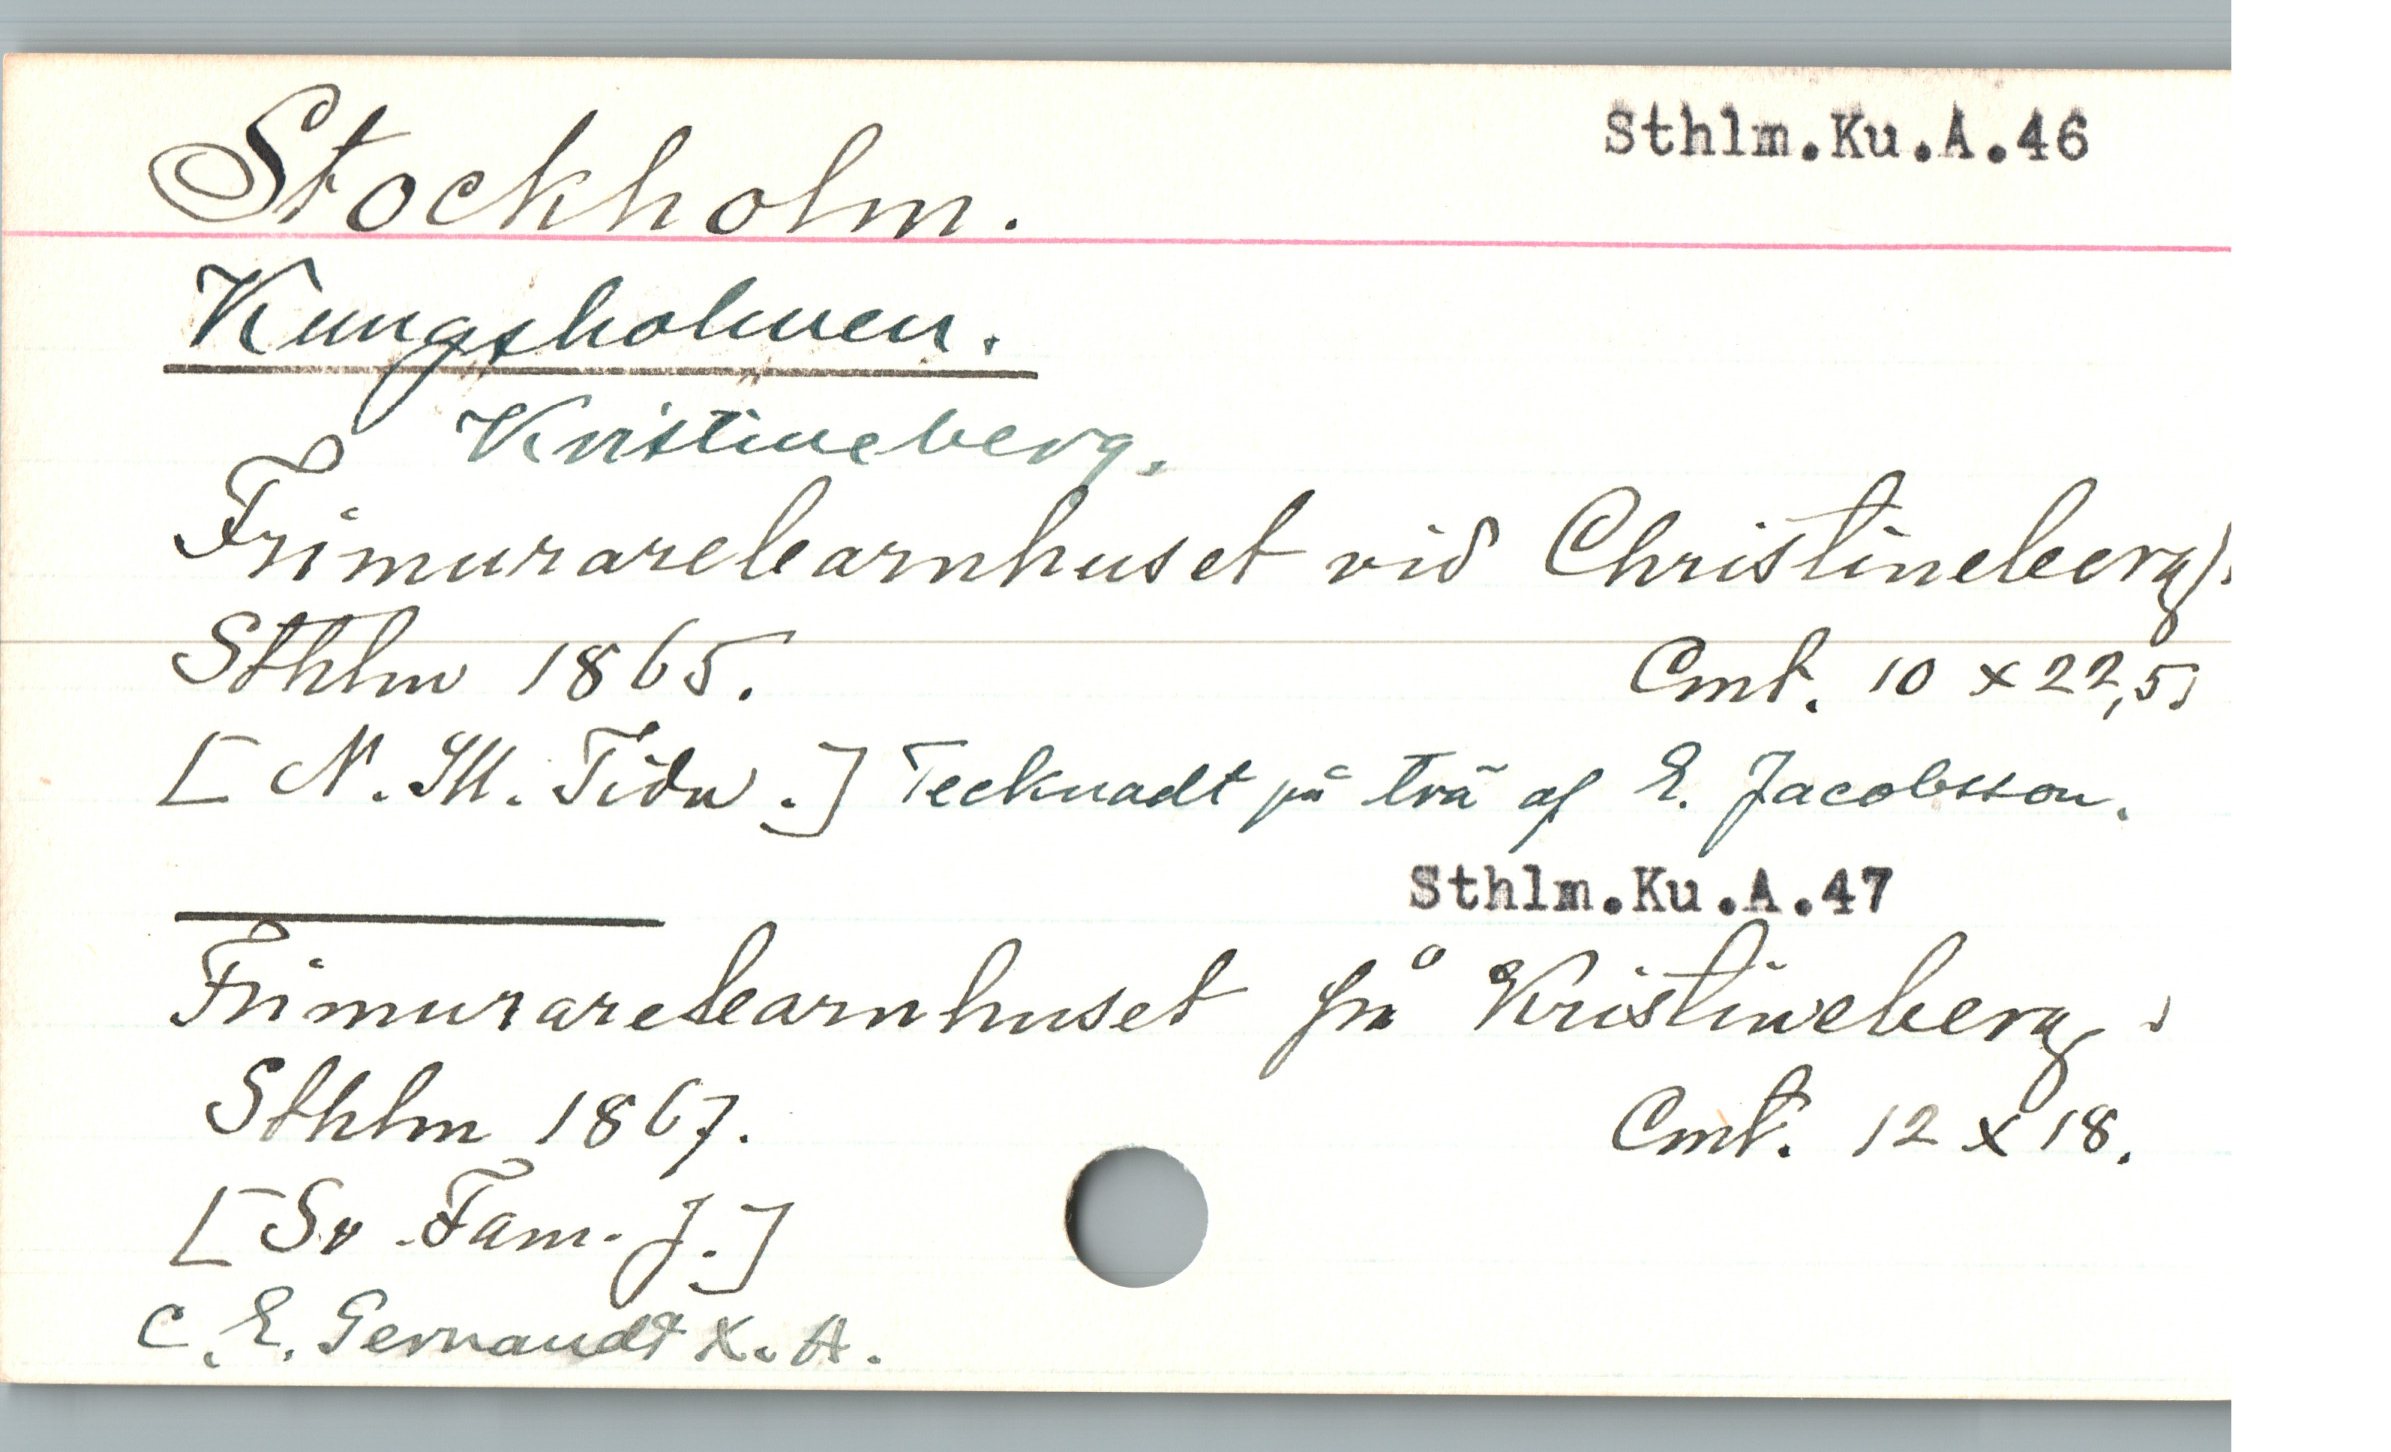 Stockholm.
Sthlm.Ku.A.46
Kungsholmen.
Kristineberg.
Frimurarebarnhuset vid Christineberg).
Sthlm 1865. Cmt. 10 x 22,5.
[N. Ill. Tidn.] Tecknadt på trä af E. Jacobsson.
Sthlm.Ku.A.47
Frimurarebarnhuset på Kristineberg.
Sthlm 1867. Cmt. 12 x 18.
[Sv. Fam. J.]
C. E. Gernandt X. A.